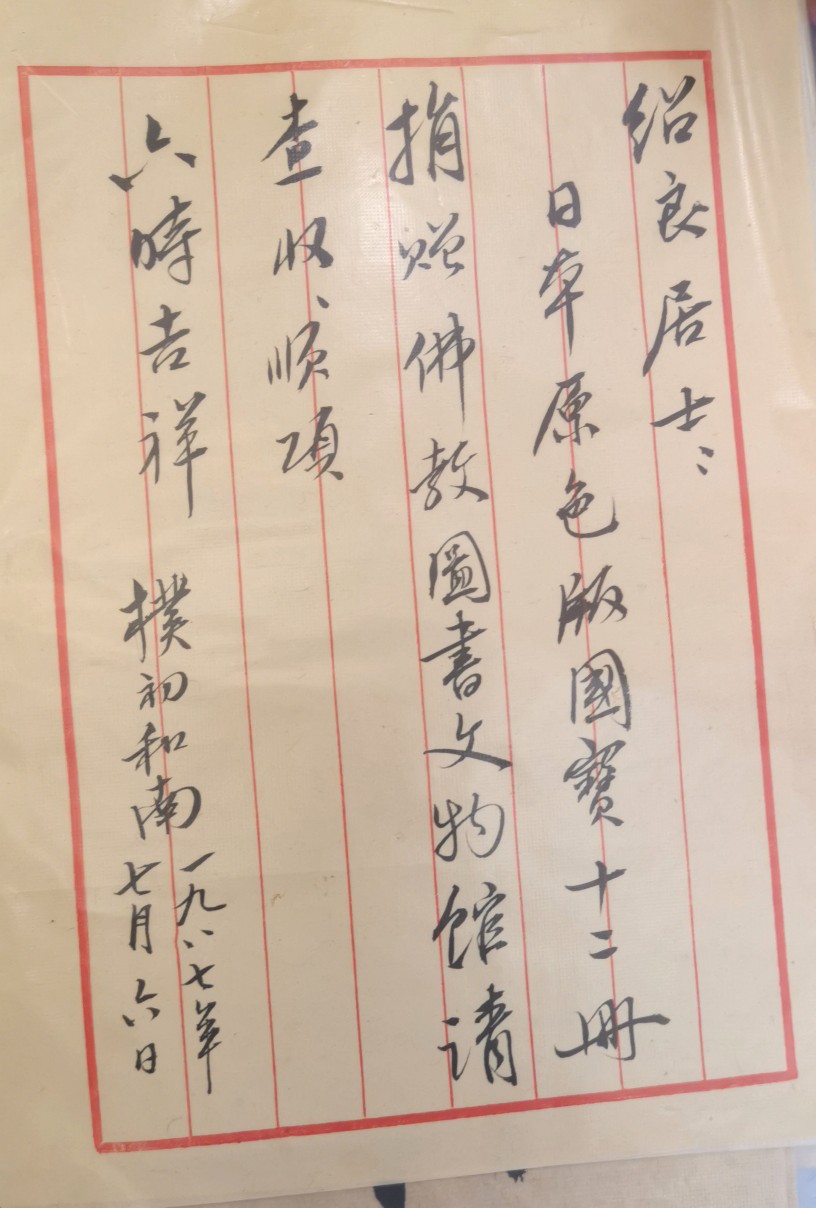 绍良居士:
日本原色版國寶十二冊
捐赠佛教圖書文物馆请
查收、顺颂
六時吉祥
樸初和南
一九八七年
七月六日